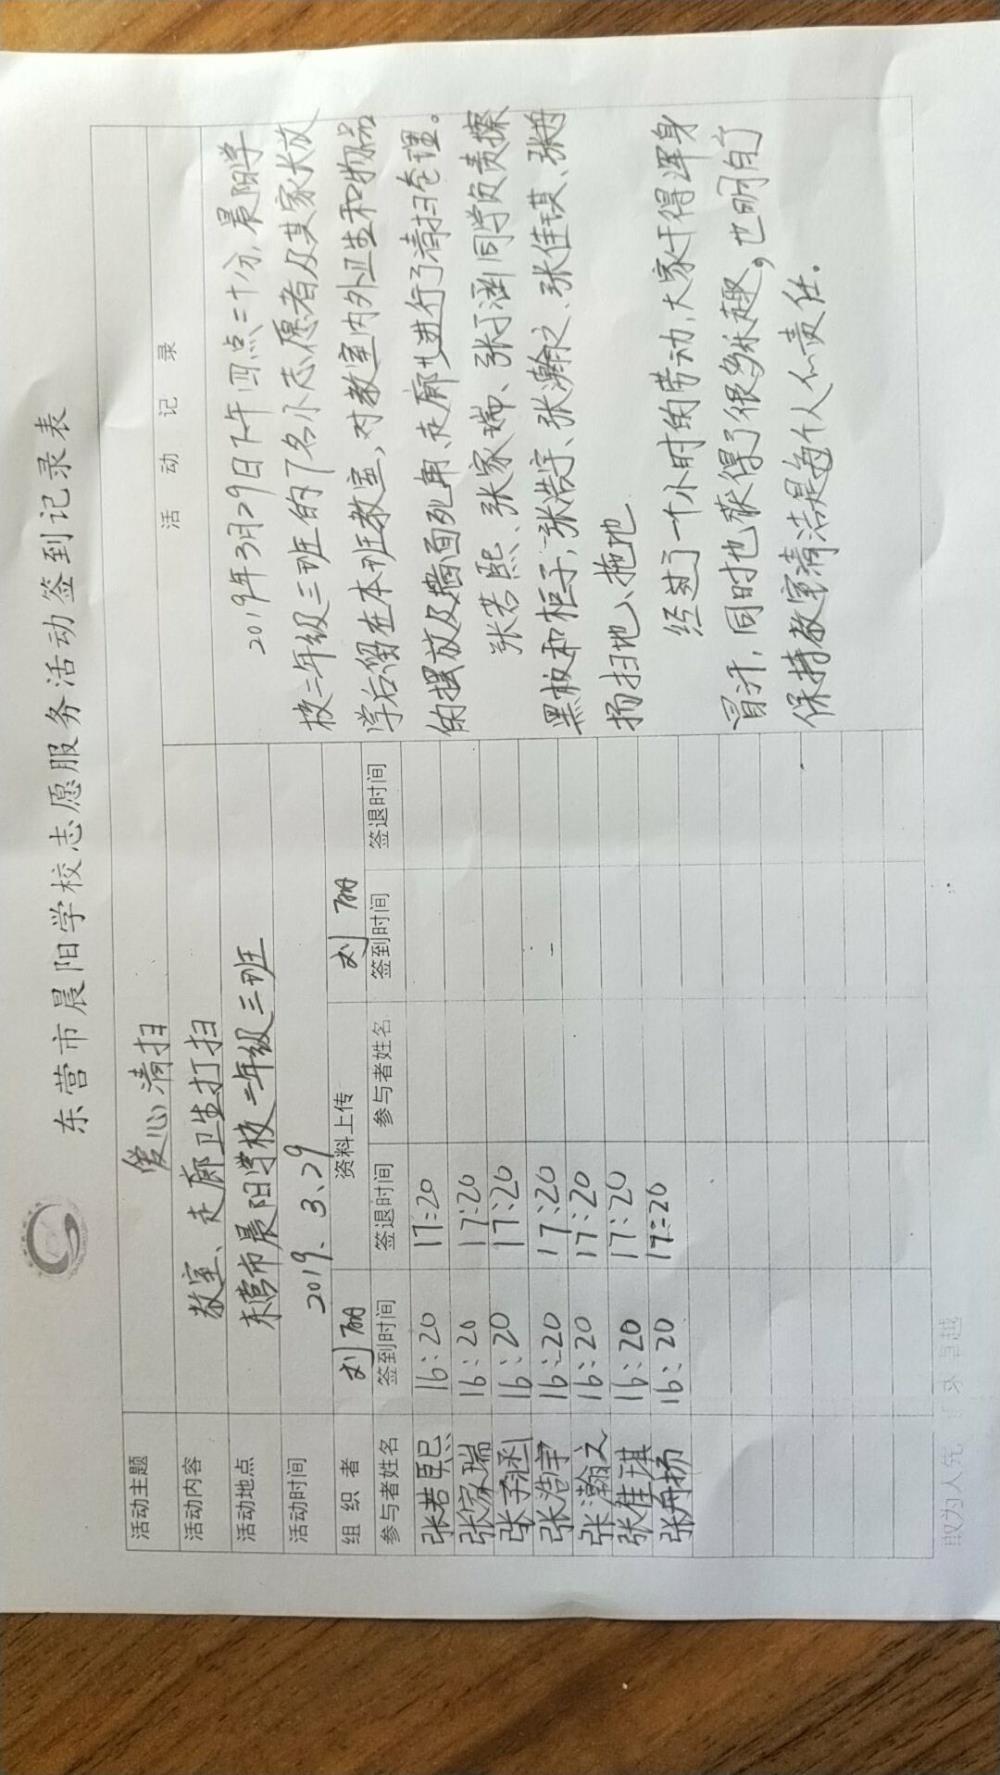 东营市晨阳学校志愿服务活动签到记录表
活动主题 爱心清扫
活动内容 教室、走廊卫生打扫
活动地点 东营市晨阳学校二年级三班
活动时间 2019.3.29
组织者 刘丽 资料上传 刘丽
参与者姓名 签到时间 签退时间 参与者姓名 签到时间 签退时间
张若熙 16:20 17:20
张家瑞 16:20 17:20
张子涵 16:20 17:20
张浩宇 16:20 17:20
张瀚之 16:20 17:20
张佳琪 16:20 17:20
张舟扬 16:20 17:20
活动记录
2019年3月29日下午四点二十分,晨阳学
校二年级三班的7名小志愿者及其家长放
学后留在本班教室,对教室内外卫生和物品
的摆放及墙面死角、走廊进行了清扫整理。
张若熙、张家瑞、张子涵同学负责擦
黑板和柜子,张浩宇、张瀚之、张佳琪、张舟
扬扫地、拖地
经过了一个小时的劳动,大家干得浑身
冒汗,同时也获得了很多乐趣,也明白了
保持教室清洁是每个人的责任.
敢为人先 卓越